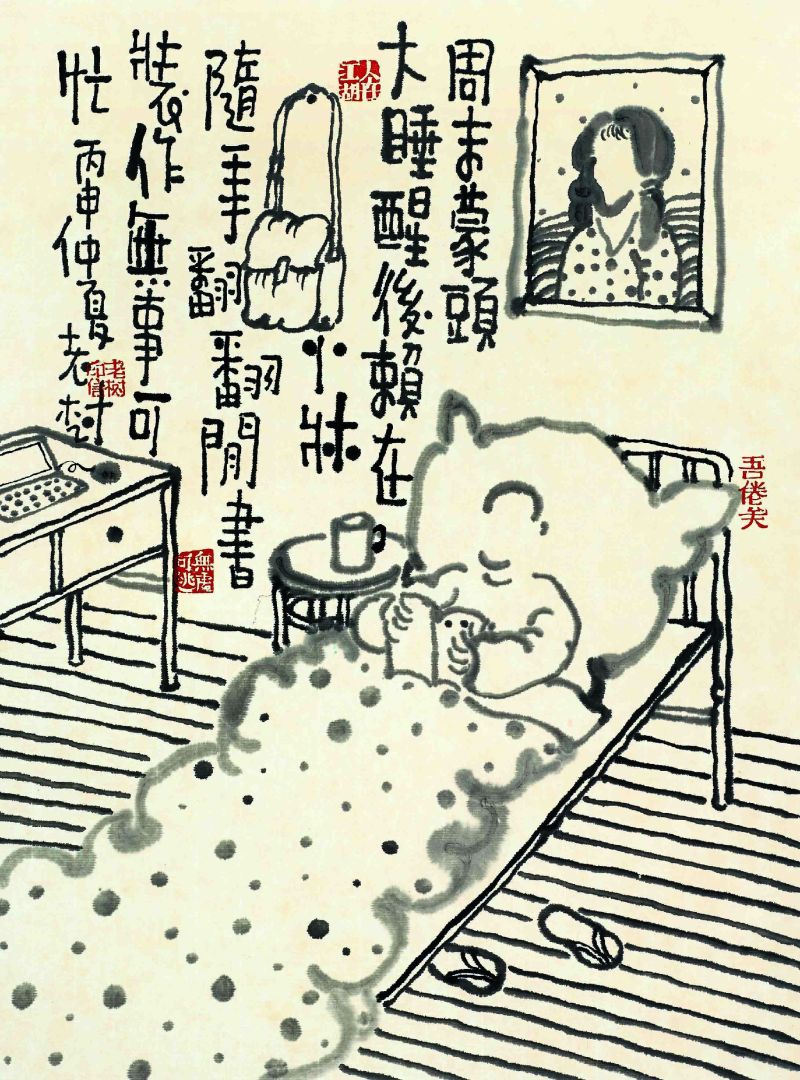 周末蒙頭
大睡醒後賴在
小牀
隨手翻翻閒書
裝作無事可
忙 丙申仲夏 老树
人在江湖
吾倦矣
無處可逃
老树印信